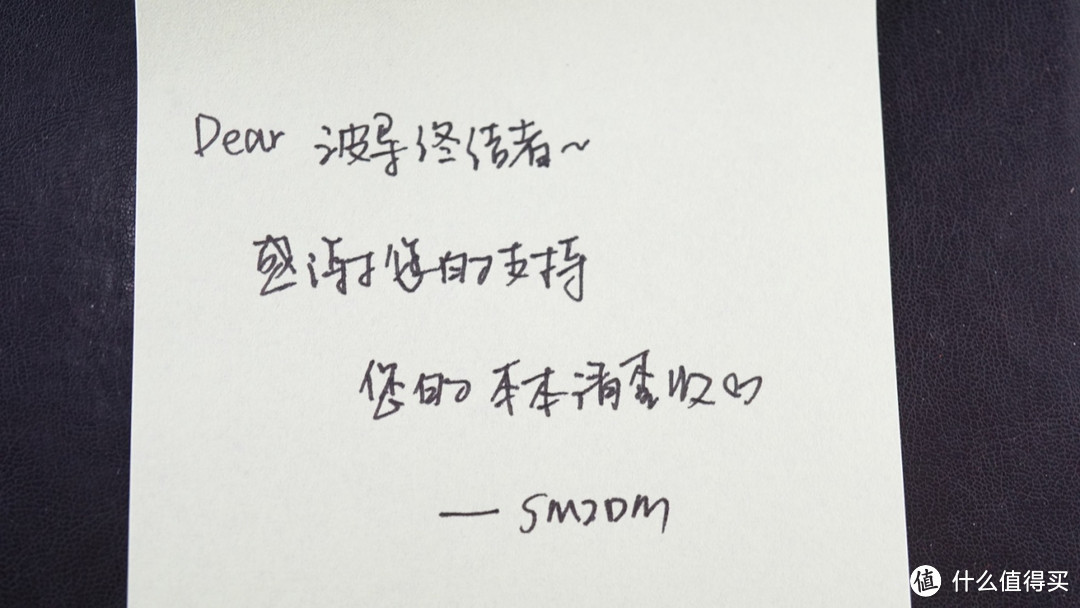 Dear 波导终结者~
感谢您的支持
您的本本请查收♡
— SMZDM
值 什么值得买